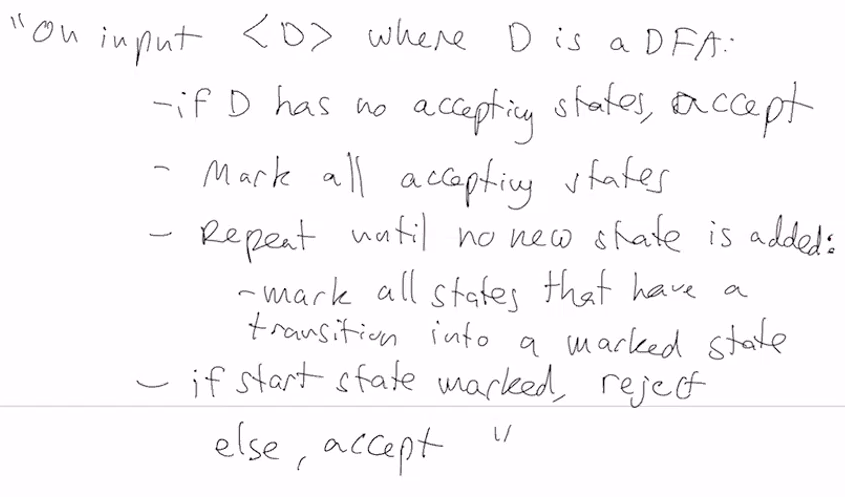 "On input <D> where D is a DFA:
- if D has no accepting states, accept
- Mark all accepting states
- Repeat until no new state is added:
- mark all states that have a
transition into a marked state
- if start state marked, reject
else, accept "